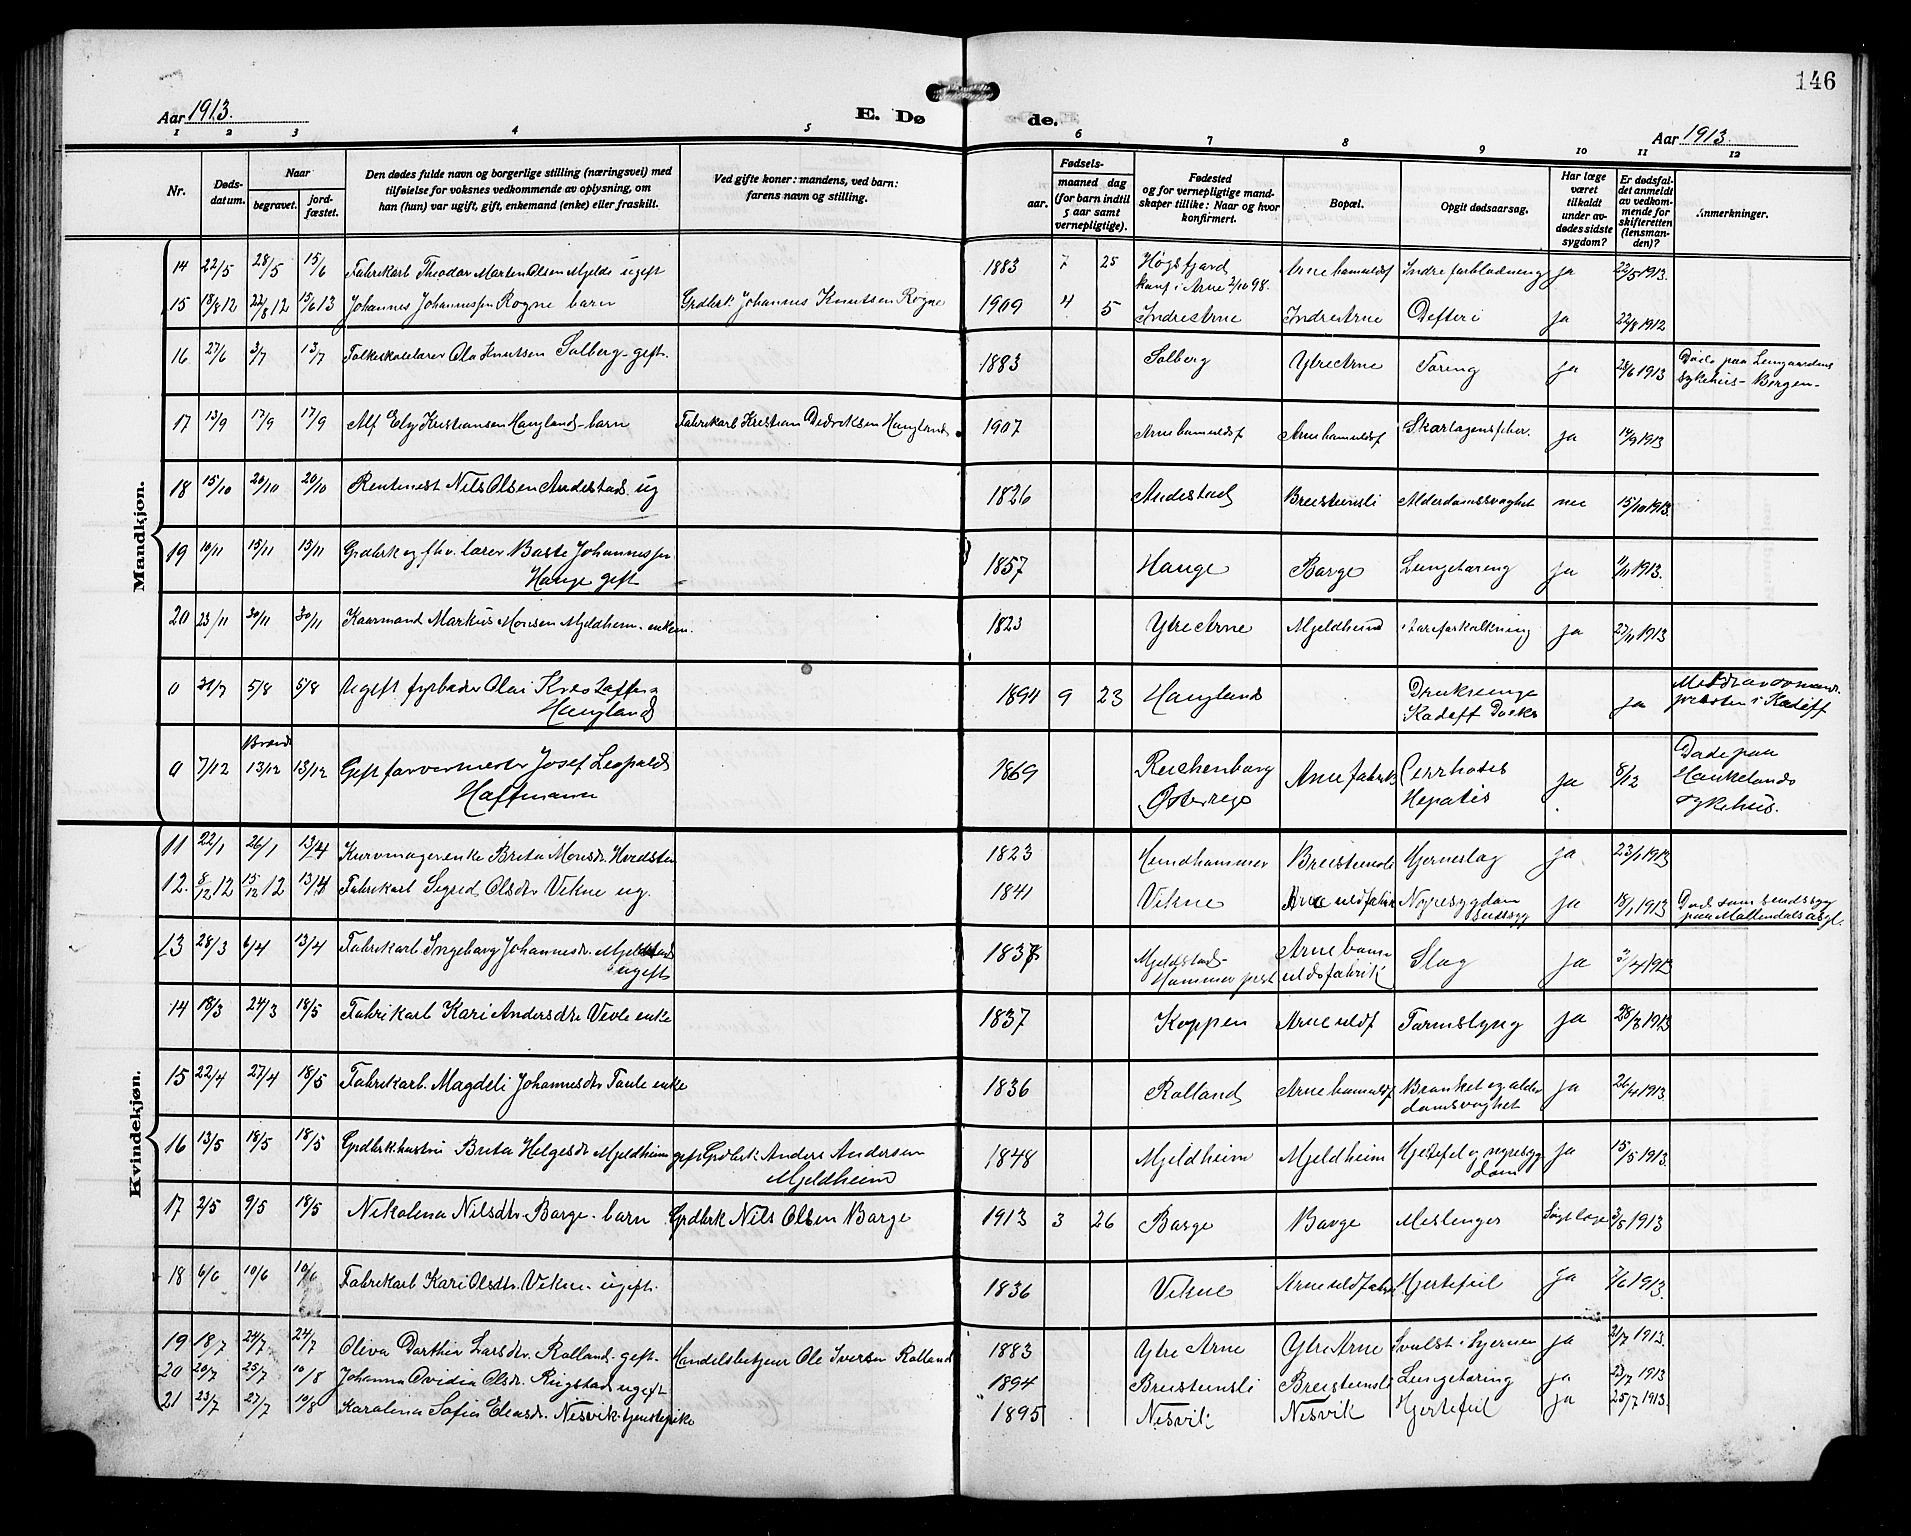 146
Aar 1913.
E. Dø de.
Aar 1913.
1 2 3 4 5 6 7 8 9 10 11 12
Nr.
Døds-
datum.
Naar
begravet.
jord-
fæstet.
Den dødes fulde navn og borgerlige stilling (næringsvei) med
tilføielse for voksnes vedkommende av oplysning, om
han (hun) var ugift, gift, enkemand (enke) eller fraskilt.
Ved gifte koner: mandens, ved barn:
farens navn og stilling.
Fødsels-
aar.
maaned dag
(for barn indtil
5 aar samt
vernepligtige).
Fødested
og for vernepligtige mand-
skaper tillike: Naar og hvor
konfirmert.
Bopæl.
Opgit dødsaarsag.
Har læge
været
tilkaldt
under av-
dødes sidste
sygdom?
Er dødsfal-
det anmeldt
av vedkom-
mende for
skifteretten
(lensman-
den)?
Anmerkninger.
Mandkjøn.
14 22/5 28/5 15/6 Fabrikarb Theodor Marten Olsen Mjelde ugift 1883 7 25 Høgsfjord Arne bomuldsf Indre forblødning ja 22/5 1913.
konf i Arne 2/10 98.
15 18/8 12 22/8 12 15/6 13 Johannes Johannessen Rogne barn Grdbrk. Johannes Knutsen Rogne 1909 4 5 Indre Arne Indre Arne Defteri ja 22/8 1912
16 27/6 3/7 13/7 Folkeskolelærer Ola Knutsen Solberg gift. 1883 Solberg Ytre Arne Tæring ja 28/6 1913 Døde paa Lungaardens
sykehus - Bergen
17 13/9 17/9 17/9 Alf Eloy Kristiansen Haugland barn Fabrikarb Kristian Didriksen Haugland 1907 Arne bomuldsf Arne bomuldsf Skarlagensfeber. ja 14/9 1913
18 15/10 20/10 20/10 Rentenist Nils Olsen Andestad ug 1826 Andestad Breistensli Alderdomssvaghet nei 15/10 1913.
19 10/11 15/11 15/11 Grdbrk og fhv. lærer Baste Johannessen
Hauge gift 1857 Hauge Borge Lungetæring ja 11/11 1913.
20 23/11 30/11 30/11 Kaarmand Markus Monsen Mjeldheim enkem. 1823 Ytre Arne Mjeldheim Aareforkalkning ja 27/11 1913
0 30/7 5/8 5/8 Ugift fyrbøder Olai Kristoffer
Haugland 1894 9 23 Haugland Druknings
Kadeff Docks ja presten i Kadeff
0 7/12 13/12 13/12 Gift farvermester Josef Leopold
Hoffmann 1869 Reichenberg
Østerrige Arne fabrik Cerrhotis
Hepatis ja 8/12 Døde paa
Haukelands
sykehus.
Kvindekjøn.
11 22/1 26/1 13/4 Kurvmagerenke Brita Monsdr. Hvidsten 1823 Hundhammer Breistensli Hjerneslag ja 23/1 1913
12. 8/12 12 15/12 12 13/4 Fabrikarb Sigrid Olsdtr Vikne ug. 1841 Vikne Arne uldfabrik Nyresygdom
sindssyg ja 18/1 1913 Død som sindssyg
paa Møllendals asyl.
13 28/3 6/4 13/4 Fabrikarb Ingeborg Johannesdr. Mjeldstad
ugift 1837 Mjeldstad-
Hammer prst Arne bom
uldsfabrik Slag ja 3/4 1913
14 18/3 24/3 18/5 Fabrikarb Kari Andersdtr Vevle enke 1837 Koppen Arne uldf Tarmslyng ja 28/3 1913
15 22/4 27/4 18/5 Fabrikarb. Magdeli Johannesdtr Taule enke 1836 Rolland Arne bomuldsf Bronket og alder
domssvaghet ja 26/4 1913
16 13/5 18/5 18/5 Grdbrk. hustru Brita Helgesdr Mjeldheim gift Grdbrk Anders Andersen
Mjeldheim 1848 Mjeldheim Mjeldheim Hjertefeil og nyresyg
dom ja 15/5 1913.
17 2/5 9/5 18/5 Nikolina Nilsdtr. Borge. barn Grdbrk Nils Olsen Borge 1913 3 26 Borge Borge Meslinger 3/5 1913
18 6/6 10/6 10/6 Fabrikarb Kari Olsdtr. Vikne ugift. 1836 Vikne Arne uldfabrik Hjertefeil ja 7/6 1913.
19 18/7 24/7 24/7 Oliva Dorthea Larsdtr. Rolland gift. Handelsbetjent Ole Iversen Rolland 1883 Ytre Arne Ytre Arne Svulst i hjernen ja 21/7 1913.
20 20/7 25/7 10/8 Johanna Ovidia Olsdr. Ringstad ugift 1894 Breistensli Breistensli Lungetæring ja 23/7 1913
21 23/7 27/7 10/8 Karolina Sofia Eliasdr. Nesvik tjenestepike 1895 Nesvik Nesvik Hjertefeil ja 25/7 1913.